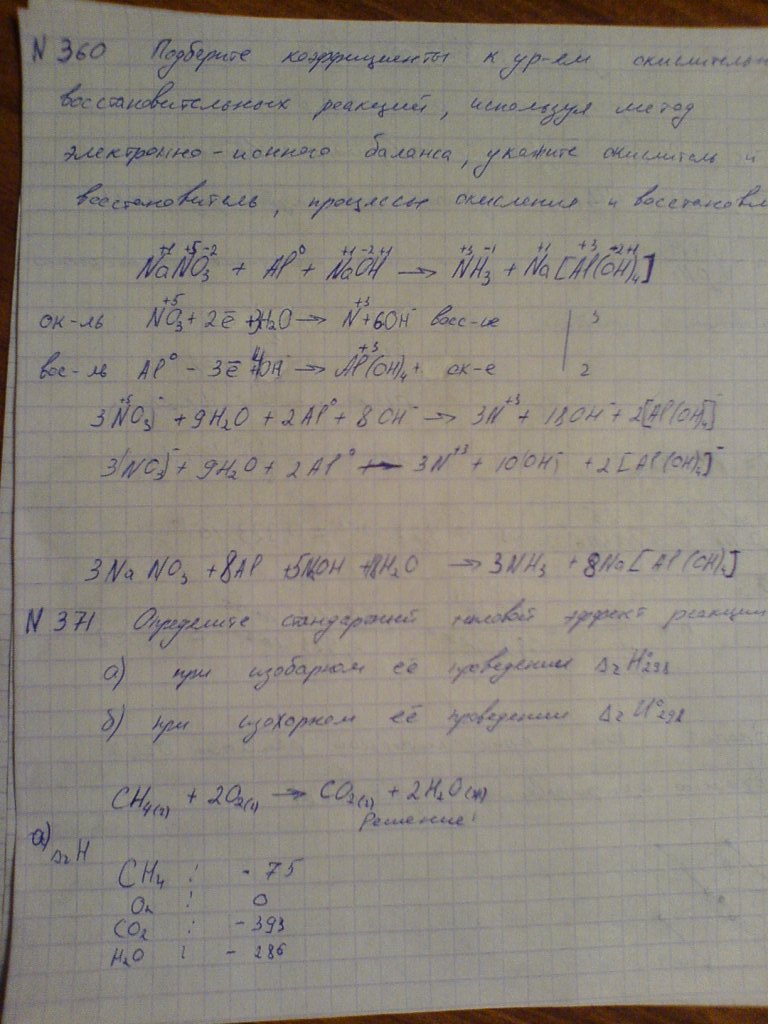 N 360 Подберите коэффициенты к ур-ем окислительно
восстановительных реакций, используя метод
электронно-ионного баланса, укажите окислитель и
восстановитель, процессы окисления и восстановл
+1 +5 -2 0 +1 -2 +1 +3 -1 +1 +3 -2 +1
NaNO3 + Al + NaOH → NH3 + Na[Al(OH)4]
ок-ль NO3 + 2ē + 3H2O → N + 6OH⁻ восс-ие | 3
вос-ль Al⁰ - 3ē + 4OH⁻ → Al(OH)4 ок-е | 2
3NO3⁻ + 9H2O + 2Al⁰ + 8OH⁻ → 3N⁺³ + 18OH⁻ + 2[Al(OH)4]⁻
3NO3⁻ + 9H2O + 2Al⁰ → 3N⁺³ + 10OH⁻ + 2[Al(OH)4]⁻
3NaNO3 + 8Al + 5NaOH + 18H2O → 3NH3 + 8Na[Al(OH)4]
N 371 Определите стандартный тепловой эффект реакции
а) при изобарном её проведении ΔrH°298
б) при изохорном её проведении ΔrU°298
CH4(г) + 2O2(г) → CO2(г) + 2H2O(ж)
Решение:
а) ΔrH
CH4 : - 75
O2 : 0
CO2 : - 393
H2O : - 286